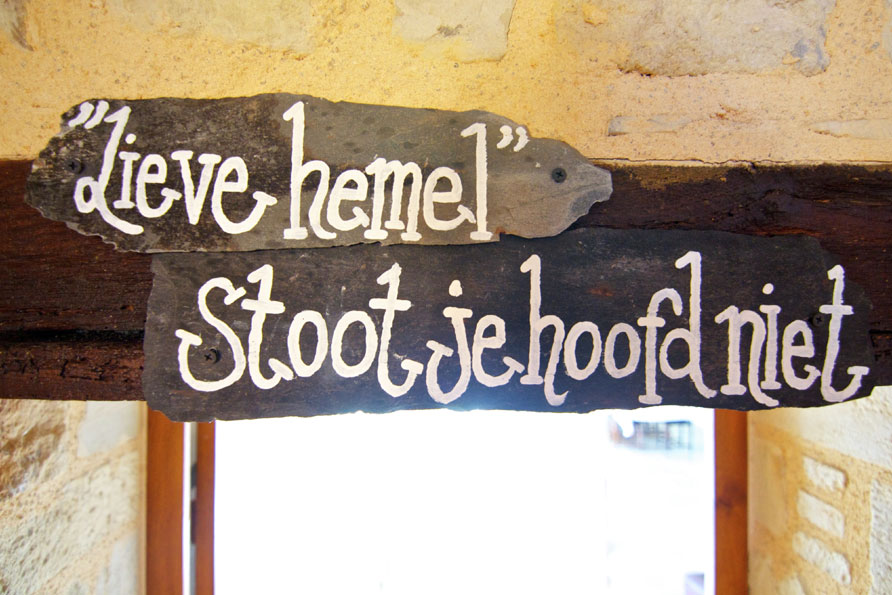 "Lieve hemel"
Stoot je hoofd niet